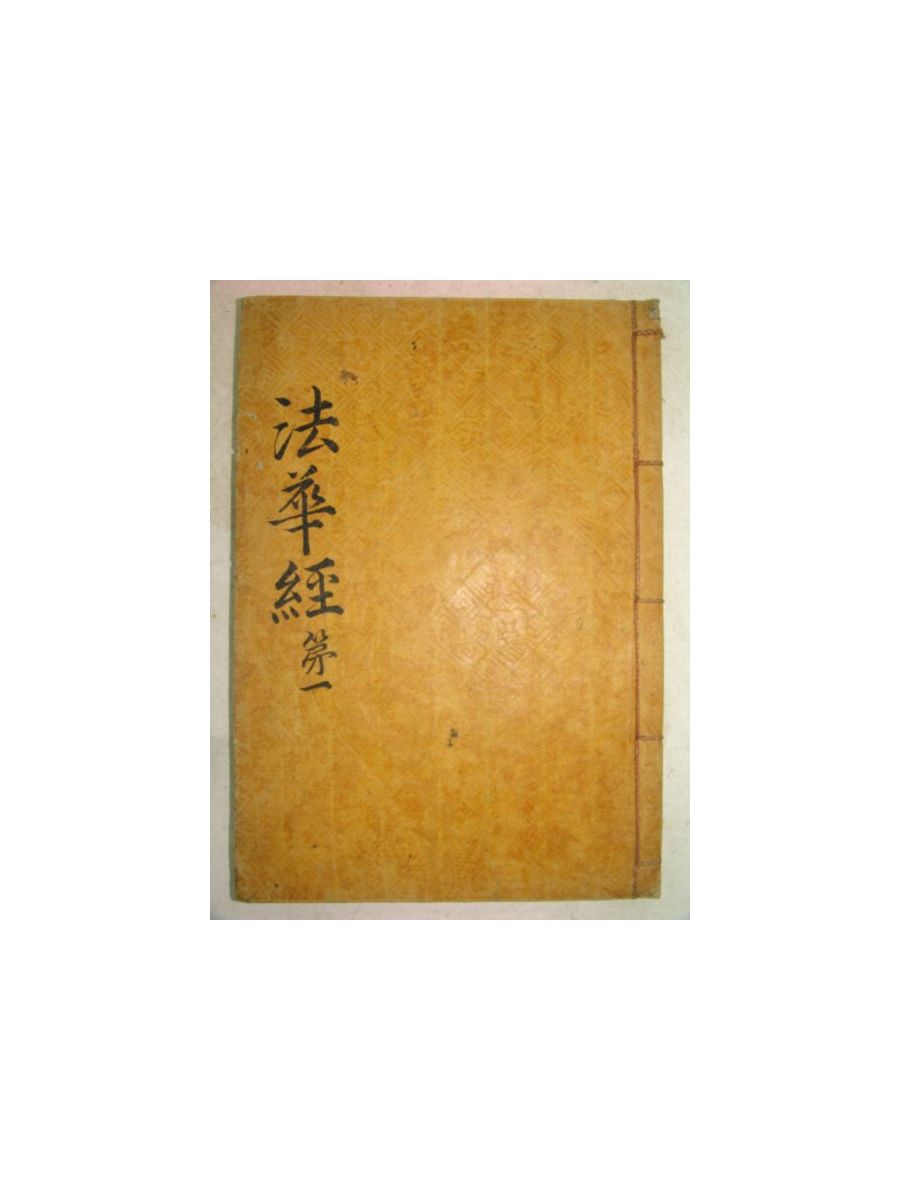 法華經第一